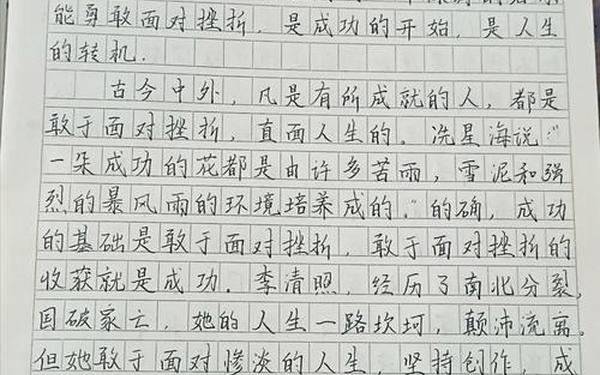 能尊敢面对挫折,是成功的开始,是人生
的转机.
古今中外,凡是有所成就的人,都是
敢于面对挫折,直面人生的.冼星海说:"
一朵成功的花都是由许多苦雨,雪泥和强
烈的暴风雨的环境培养成的."的确,成功
的基础是敢于面对挫折,敢于面对挫折的
收获就是成功.李清照,经历了南北分裂,
国破家亡,她的人生一路坎坷,颠沛流离.
但她敢于面对惨淡的人生,坚持创作,成